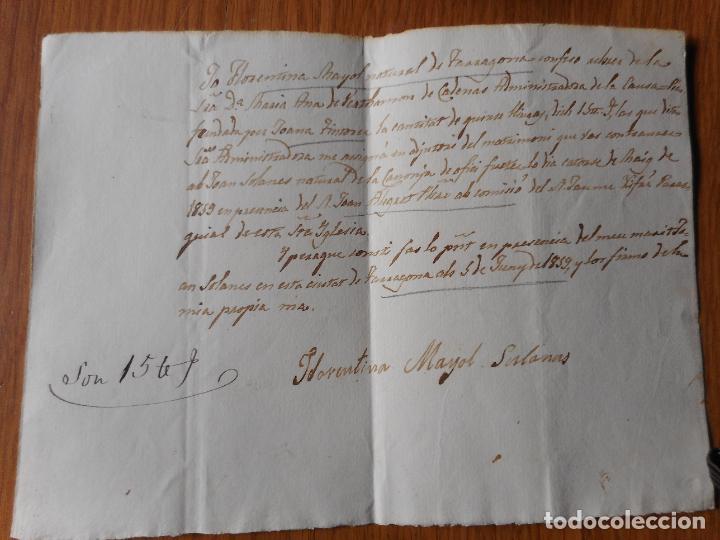 Jo Florentina Mayol natural de Tarragona confeso rebrer de la
Sra. Da. Maria Ana de de Cadenas Administradora de la Causa Pia
fundada per Joana la cantitat de quinse lliuras, dich 15 , las que dita
Sra. Administradora me asigná en adjutori del matrimoni que vas contraurer
ab Joan Solanes natural de la Canonja de ofici fuster lo dia catorse de Maig de
1859 en presencia del R. Joan Miquel ab comisió del R. Jaume Parro-
quial de esta Sta. Yglesia.
Y peraque consti fas lo pnt. en presencia del meu marit Jo-
an Solanes en esta ciutat de Tarragona als 5 de Juny de 1859, y los firmo de la
mia propia ma.
Son 15
Florentina Mayol Solanas
todocoleccion.net